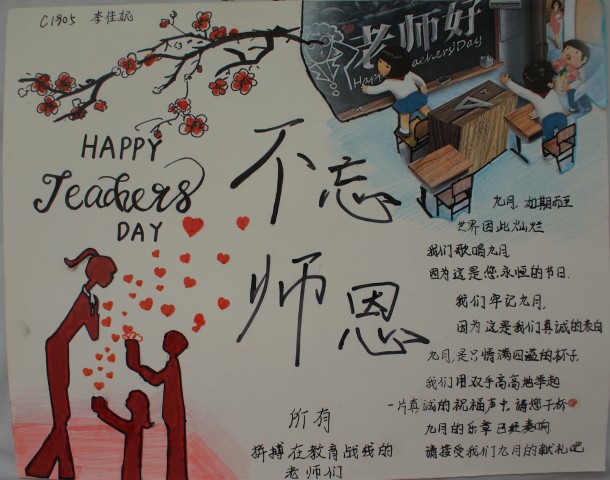 C1905 李佳妮
老师好
Happy Teachers Day
HAPPY
Teachers
DAY
不忘
师恩
九月,如期而至
世界因此灿烂
我们歌唱九月
因为这是您永恒的节日.
我们牢记九月,
因为这是我们真诚的表白
九月,是只情满四溢的杯子
我们用双手高高地举起
一片真诚的祝福声中,请您干杯
九月的乐章已赶奏响
请接受我们九月的献礼吧
所有
拼搏在教育战线的
老师们